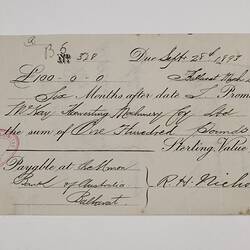 B 6
328
Due Sept. 28th 1893
£100-0-0
Six Months after date I Prom
McKay Harvesting Machinery Coy Ltd
the sum of One Hundred Pounds
Sterling, Value
Payable at the Union
Bank of Australia
Ballarat
R. H. Nicho